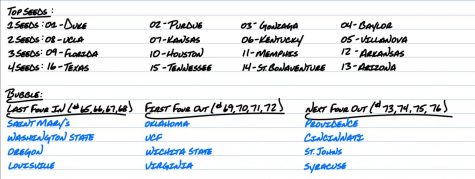 TOP SEEDS:
1 SEEDS: 01 - DUKE 02 - PURDUE 03 - GONZAGA 04 - BAYLOR
2 SEEDS: 08 - UCLA 07 - KANSAS 06 - KENTUCKY 05 - VILLANOVA
3 SEEDS: 09 - FLORIDA 10 - HOUSTON 11 - MEMPHIS 12 - ARKANSAS
4 SEEDS: 16 - TEXAS 15 - TENNESSEE 14 - ST. BONAVENTURE 13 - ARIZONA
BUBBLE:
LAST FOUR IN (#65,66,67,68) FIRST FOUR OUT (#69,70,71,72) NEXT FOUR OUT (#73,74,75,76)
SAINT MARY'S OKLAHOMA PROVIDENCE
WASHINGTON STATE UCF CINCINNATI
OREGON WICHITA STATE ST. JOHNS
LOUISVILLE VIRGINIA SYRACUSE